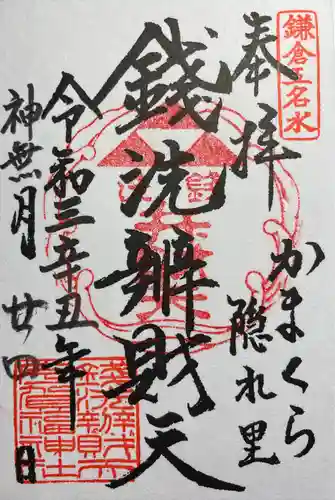 鎌倉五名水
奉拝
かまくら
隠れ里
銭洗辨財天
令和三辛丑年
神無月廿四日